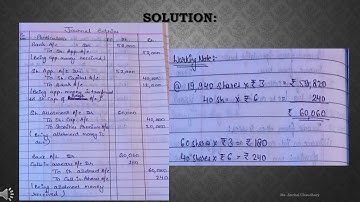 SOLUTION:
Journal Entries
Particulars Dr. Cr.
Bank A/c Dr 52,000
To Sh. App. A/c 52,000
(Being app. money received)
Sh. App. A/c Dr. 52,000
To Sh. Capital A/c 40,000
To Bank A/c
(Being app. money transferred
to Sh. Cap. A/c)
Sh. Allotment A/c Dr 60,000
To Sh. Cap. A/c 40,000
To Securities Premium A/c 20,000
(Being allotment money is
due)
Bank A/c Dr
Calls in arrears A/c Dr
To Sh. allotment A/c 60,000
To Call in Advance A/c 240
(Being allotment money
received)
Working Note:-
@ 19,940 shares x ₹ 3 = ₹ 59,820
40 Sh. x ₹ 6 = 240
₹ 60,060
60 shares x ₹ 3 = ₹ 180
40 shares x ₹ 6 = ₹ 240
Ms. Anchal Chaudhary